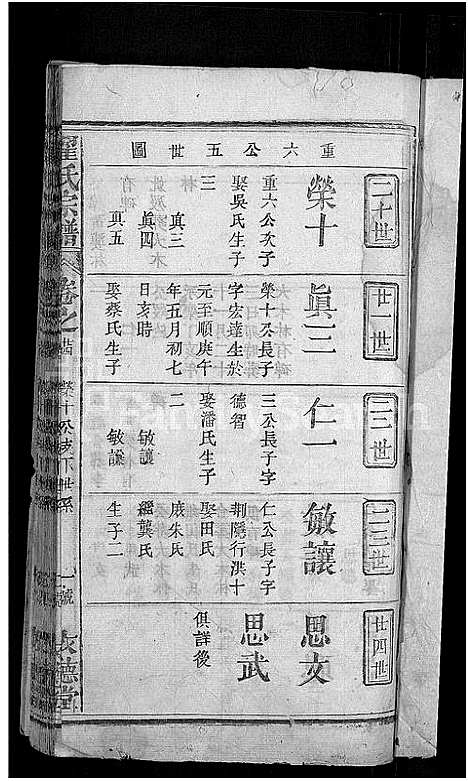 重六公五世圖
二十世
榮十
重六公次子
娶吳氏生子
三
真三
真四
真五
廿一世
眞三
榮十公長子
字宏達生於
元至順庚午
年五月初七
日亥時
娶蔡氏生子
二二世
仁一
三公長子字
德智
娶潘氏生子
二
敏讓
敏謙
二三世
敏讓
仁公長子字
行洪十
娶田氏
朱氏
繼龔氏
生子二
廿四世
思文
思武
俱詳後
氏宗譜
卷之
榮十公支下世系
一號
友德堂